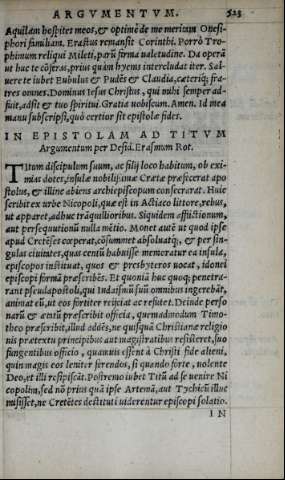 ARGVMENTVM. 523
Aquilam hospites meos, & optimè de me meritam Onesi-
phori familiam. Erastus remansit Corinthi. Porrò Tro-
phimum reliqui Mileti, parū firma ualetudine. Da operā
ut huc te cōferas, prius quàm hyems intercludat iter. Sal-
uere te iubet Eubulus & Pudēs & Claudia, cæteriq; fra-
tres omnes. Dominus Iesus Christus, qui mihi semper ad-
fuit, adsit & tuo spiritui. Gratia uobiscum. Amen. Id mea
manu subscripsi, quò certior sit epistolæ fides.
IN EPISTOLAM AD TITVM
Argumentum per Desid. Erasmum Rot.
TItum discipulum suum, ac filij loco habitum, ob exi-
mias dotes, insulæ nobilissimæ Cretæ præfecerat apo
stolus, & illinc abiens archiepiscopum consecrarat. Huic
scribit ex urbe Nicopoli, quæ est in Actiaco littore, rebus,
ut apparet, adhuc trāquillioribus. Siquidem afflictionum,
aut persequutionū nulla mētio. Monet autē ut quod ipse
apud Cretēses cœperat, cōsummet absoluatq́;, & per sin-
gulas ciuitates, quas centū habuisse memoratur ea insula,
episcopos instituat, quos & presbyteros uocat, idonei
episcopi formā præscribēs. Et quoniā huc quoq; penetra-
rant pseudapostoli, qui Iudaismū suū omnibus ingerebāt,
animat eū, ut eos fortiter reijciat ac refutet. Deinde perso
narū & ætatū præscribit officia, quemadmodum Timo-
theo præscribit, illud addēs, ne quisquā Christianæ religio
nis prætextu principibus aut magistratibus resisteret, suo
fungentibus officio, quamuis essent à Christi fide alieni,
quin magis eos leniter ferendos, si quando forte, uolente
Deo, et illi resipiscāt. Postremo iubet Titū ad se uenire Ni
copolim, sed nō prius quā ipse Artemā, aut Tychicū illuc
misisset, ne Cretētes destituti uiderentur episcopi solatio.
IN